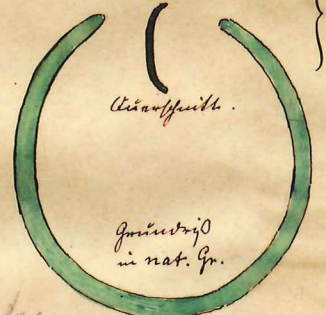 Querschnitt.
Grundriß
in nat. Gr.